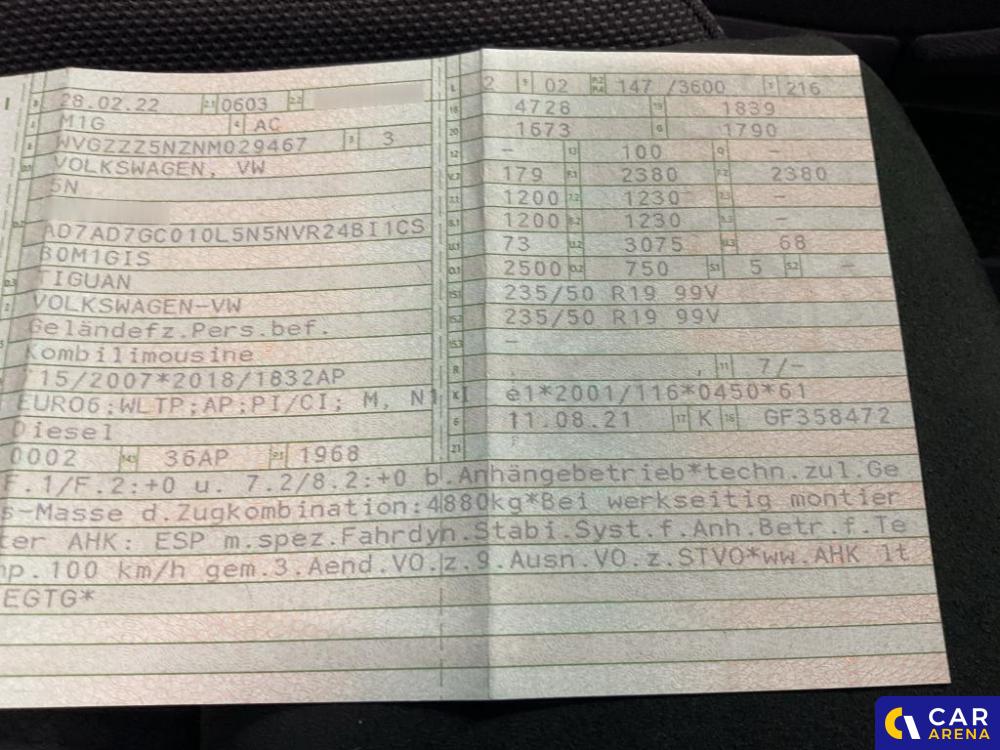 28.02.22 2.1 0603 2.2
M1G 4 AC
WVGZZZ5NZNM029467 3 3
VOLKSWAGEN, VW
5N
AD7AD7GC010L5N5NVR24BI1CS
B0M1GIS
TIGUAN
VOLKSWAGEN-VW
Geländefz.Pers.bef.
Kombilimousine
15/2007*2018/1832AP
EURO6;WLTP;AP;PI/CI; M, N1 I
Diesel
0002 14.1 36AP P.1 1968
L 2 9 02 P.2 P.4 147 /3600 T 216
18 4728 19 1839
20 1673 G 1790
12 – 13 100 Q –
V.7 179 F.1 2380 F.2 2380
7.1 1200 7.2 1230 7.3 –
8.1 1200 8.2 1230 8.3 –
U.1 73 U.2 3075 U.3 68
O.1 2500 O.2 750 S.1 5 S.2 –
15.1 235/50 R19 99V
15.2 235/50 R19 99V
15.3 –
R , 11 7/–
K e1*2001/116*0450*61
6 11.08.21 17 K 16 GF358472
21
F.1/F.2:+0 u. 7.2/8.2:+0 b.Anhängebetrieb*techn.zul.Ge
s-Masse d.Zugkombination:4880kg*Bei werkseitig montier
ter AHK: ESP m.spez.Fahrdyn.Stabi.Syst.f.Anh.Betr.f.Te
mp.100 km/h gem.3.Aend.VO.z.9.Ausn.VO.z.STVO*ww.AHK lt
EGTG*
CAR
ARENA